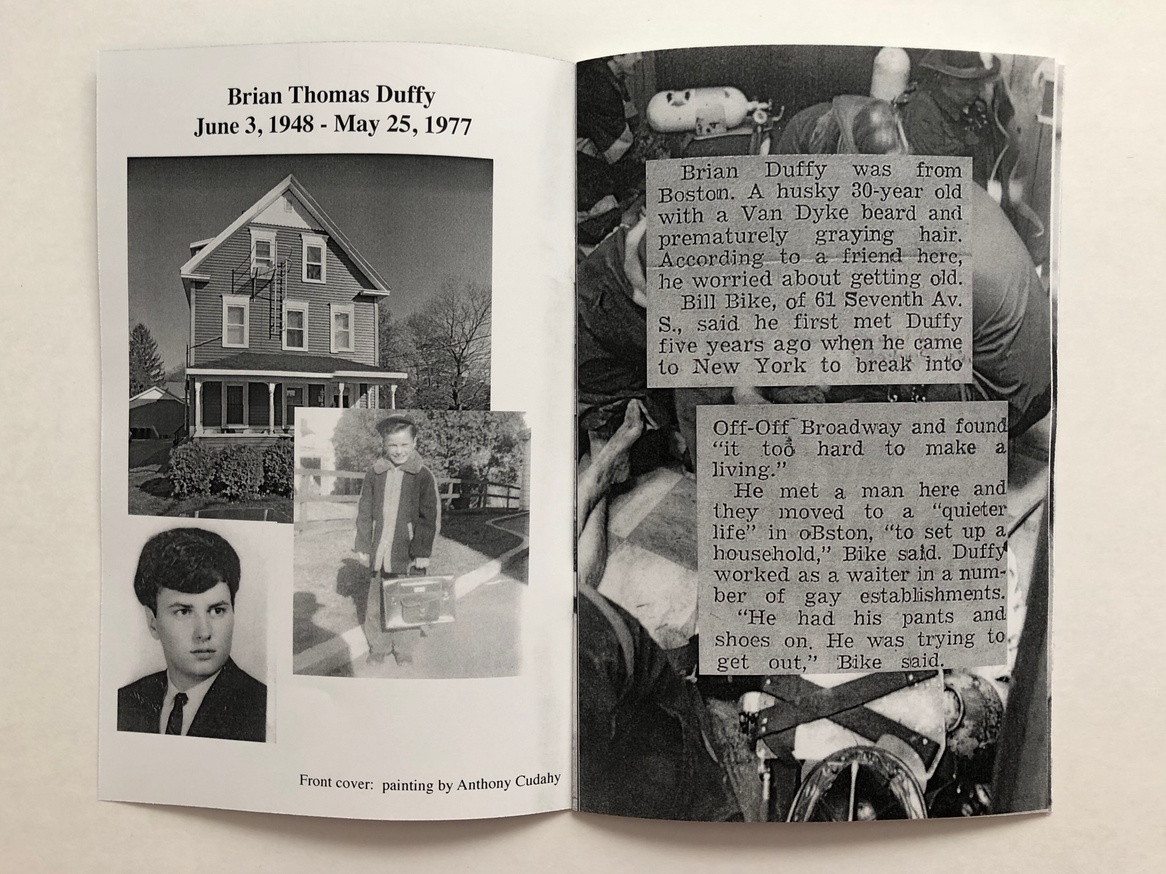 Brian Thomas Duffy
June 3, 1948 - May 25, 1977
Front cover: painting by Anthony Cudahy
Brian Duffy was from
Boston. A husky 30-year old
with a Van Dyke beard and
prematurely graying hair.
According to a friend here,
he worried about getting old.
Bill Bike, of 61 Seventh Av.
S., said he first met Duffy
five years ago when he came
to New York to break into
Off-Off Broadway and found
“it too hard to make a
living.”
He met a man here and
they moved to a “quieter
life” in oBston, “to set up a
household,” Bike said. Duffy
worked as a waiter in a num-
ber of gay establishments.
“He had his pants and
shoes on. He was trying to
get out,” Bike said.